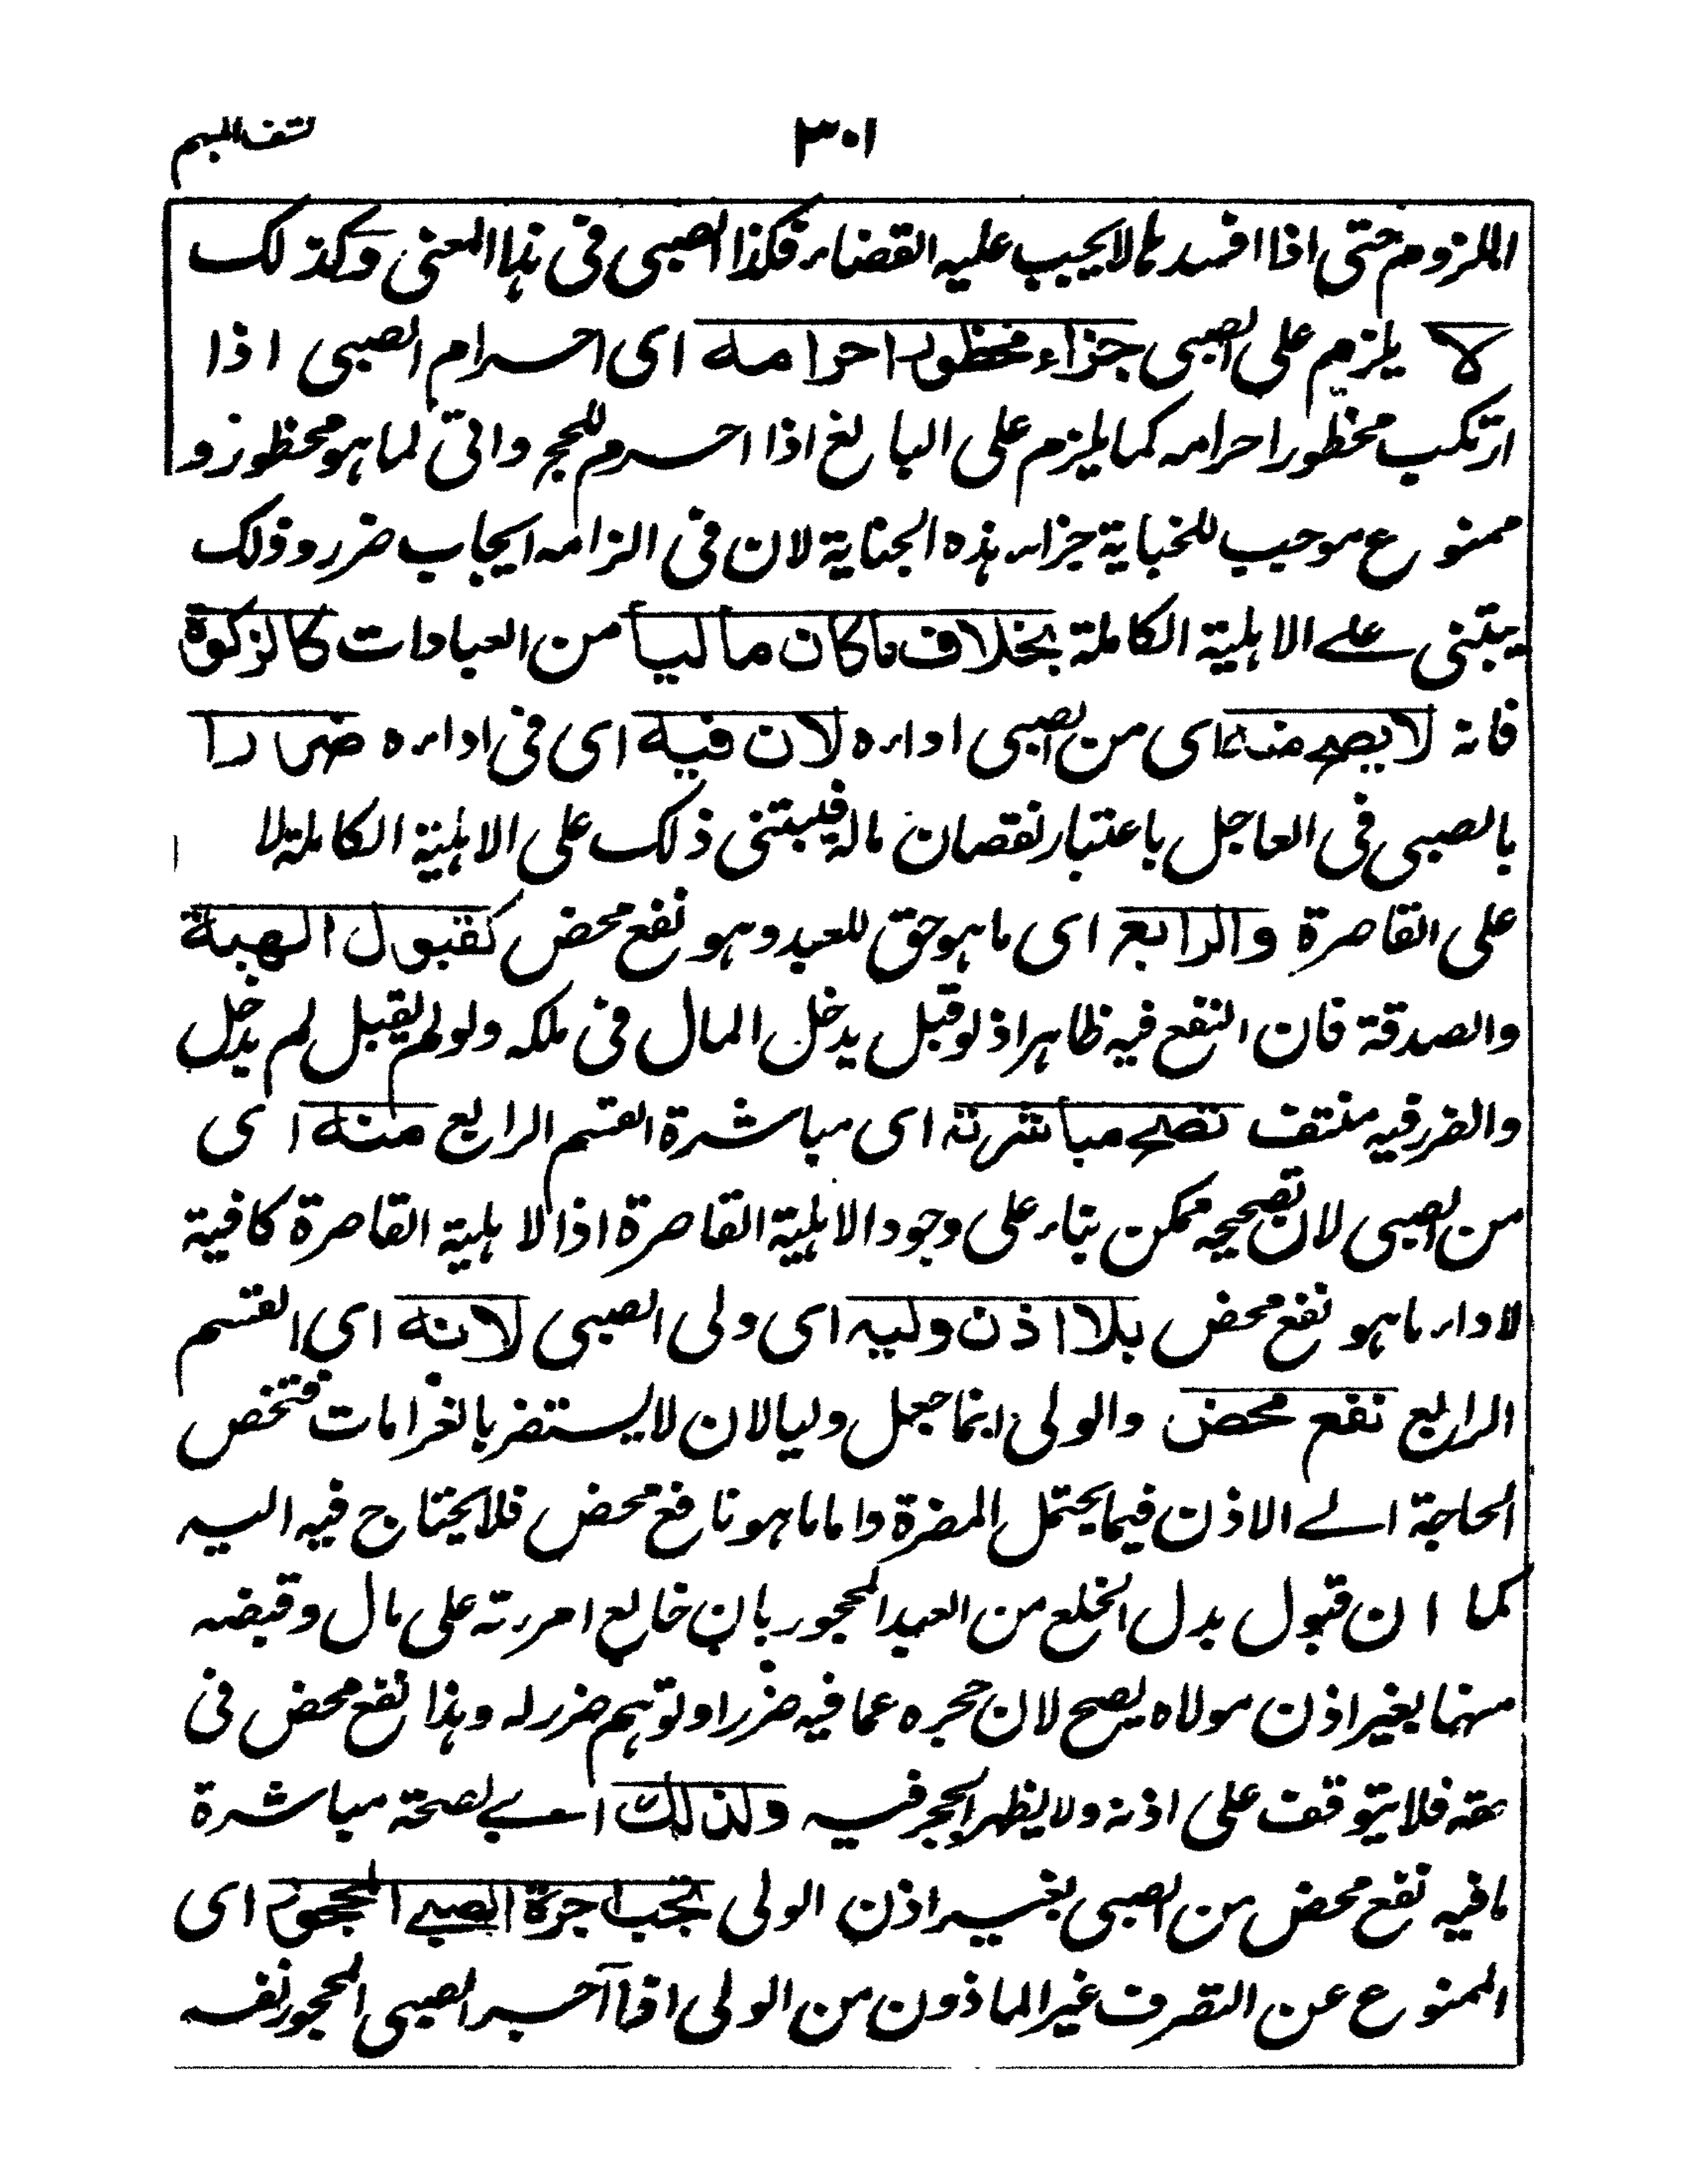 ٣٠١
كشف المبهم
اللزوم حتى اذا افسدها لا يجب عليه القضاء فكذا الصبى فى هذا المعنى وكذلك
لا يلزم على الصبى جزاء محظور احرامه اى احرام الصبى اذا
ارتكب محظور احرامه كما يلزم على البالغ اذا احرم للحج واتى لما هو محظور و
ممنوع موجب للجناية جزاء هذه الجناية لان فى الزامه ايجاب ضرر وذلك
يبتنى على الاهلية الكاملة بخلاف ما كان ماليا من العبادات كالزكوة
فانه لا يصح منه اى من الصبى اداءه لان فيه اى فى اداءه ضررا
بالصبى فى العاجل باعتبار نقصان ماله فيبتنى ذلك على الاهلية الكاملة لا
على القاصرة والرابع اى ما هو حق للعبد وهو نفع محض كقبول الهبة
والصدقة فان النفع فيه ظاهر اذ لو قبل يدخل المال فى ملكه ولو لم يقبل لم يدخل
والضرر فيه منتف تصح مباشرته اى مباشرة القسم الرابع منه اى
من الصبى لان تصحيحه ممكن بناء على وجود الاهلية القاصرة اذ الاهلية القاصرة كافية
لاداء ما هو نفع محض بلا اذن وليه اى ولى الصبى لانه اى القسم
الرابع نفع محض والولى انما جعل وليا لان لا يستضر بالغرامات فتخص
الحاجة الى الاذن فيما يحتمل المضرة واما ما هو نافع محض فلا يحتاج فيه اليه
كما ان قبول بدل الخلع من العبد المحجور بان خالع امرءته على مال وقبضه
منهما بغير اذن مولاه يصح لان حجره عما فيه ضرر او توهم ضرر له وهذا نفع محض فى
حقه فلا يتوقف على اذنه ولا يظهر الحجر فيه ولذلك اى لصحة مباشرة
ما فيه نفع محض من الصبى بغير اذن الولى تجب اجرة الصبى المحجور اى
الممنوع عن التصرف غير الماذون من الولى اذا آجر الصبى المحجور نفسه